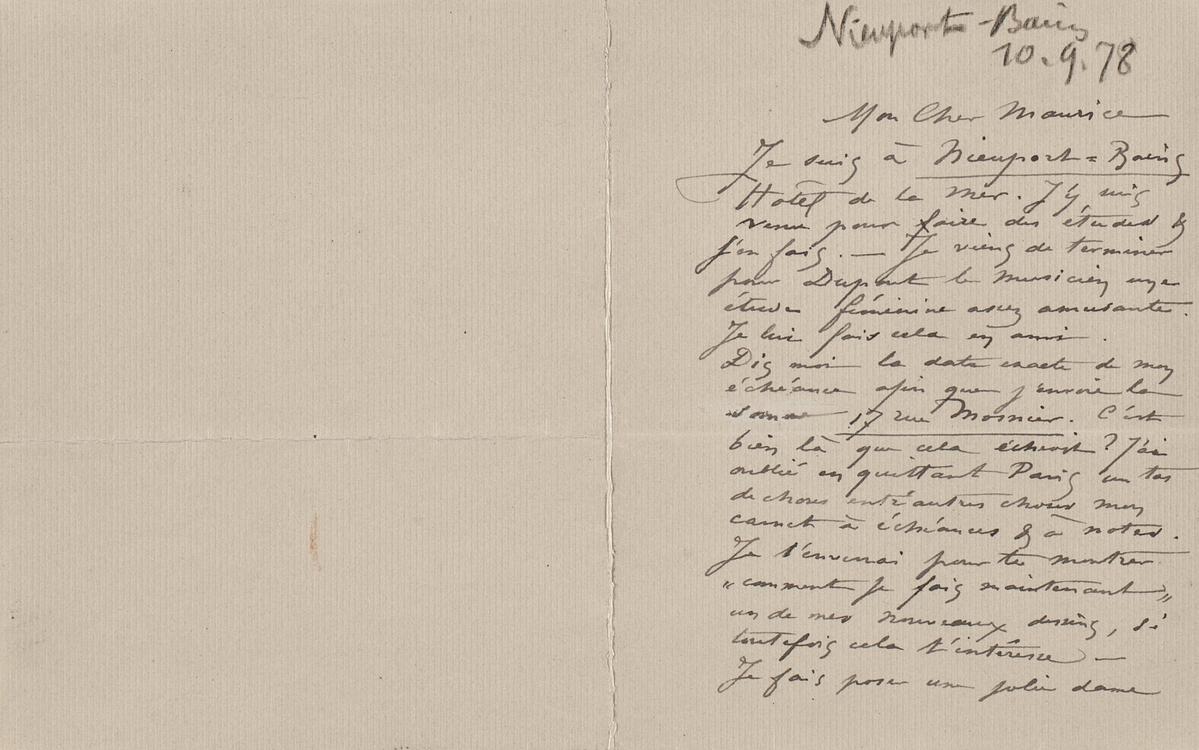 Nieuport-Bains
10.9.78
Mon Cher Maurice
Je suis à Nieuport=Bains
Hotel de la mer. J'y suis
venu pour faire des études &
j'en fais. — Je viens de terminer
pour Dupont le musicien une
étude féminine assez amusante.
Je lui fais cela en ami.
Dis moi la date exacte de mon
échéance afin que j'envoie la
somme 17 rue Mosnier. C'est
bien là que cela échoit? J'ai
oublié en quittant Paris un tas
de choses entr'autres choses mon
carnet à échéances & à notes.
Je t'enverrai pour te montrer
"comment je fais maintenant"
un de mes nouveaux dessins, si
toutefois cela t'intéresse —
Je fais poser une jolie dame